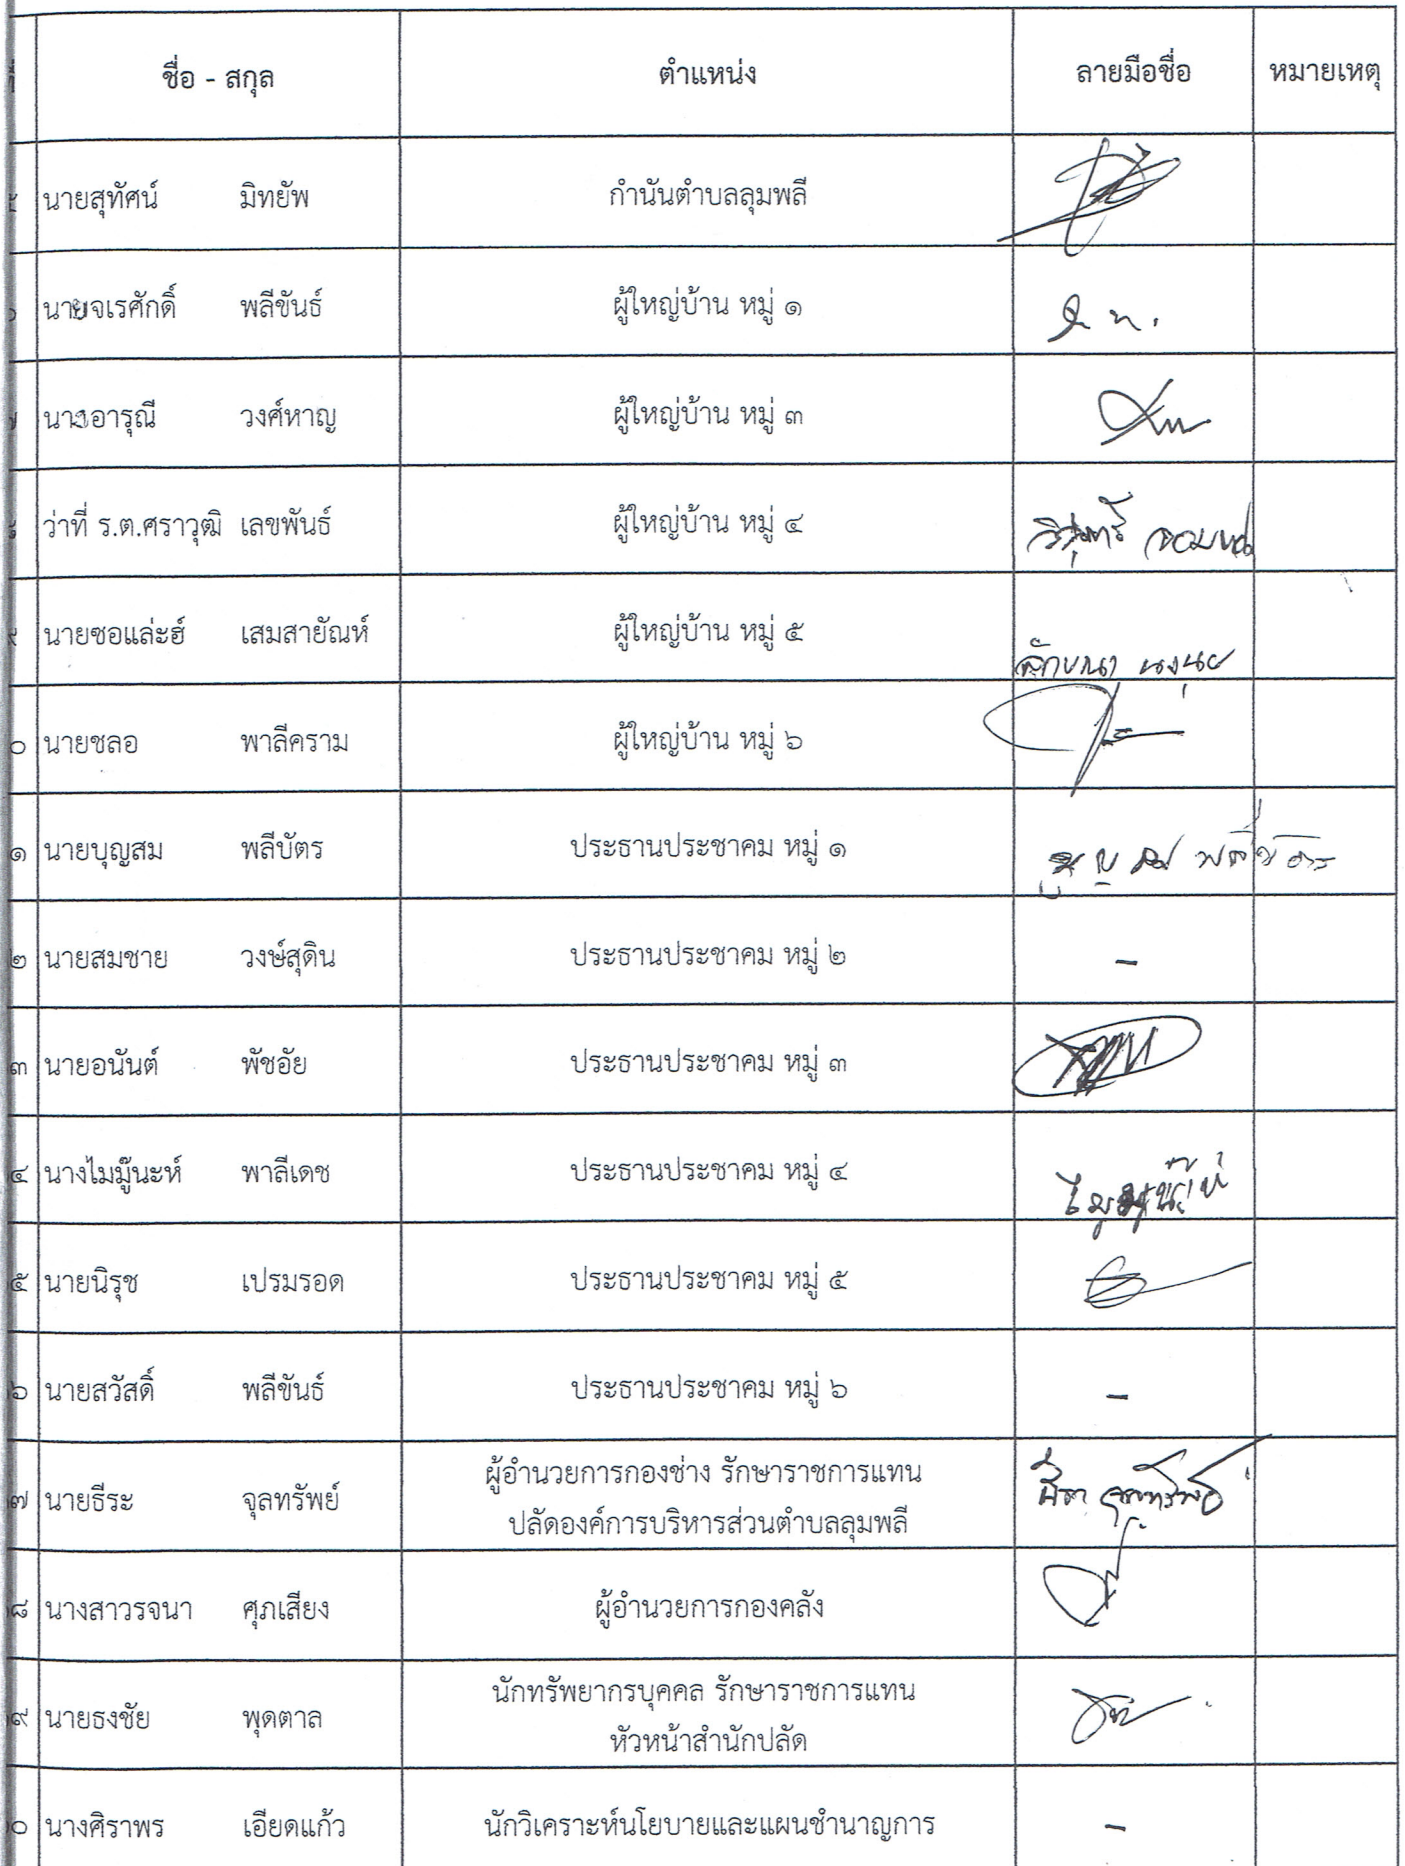 ชื่อ - สกุล ตำแหน่ง ลายมือชื่อ หมายเหตุ
นายสุทัศน์ มิทยัพ กำนันตำบลลุมพลี
นายจเรศักดิ์ พลีขันธ์ ผู้ใหญ่บ้าน หมู่ ๑
นางอารุณี วงศ์หาญ ผู้ใหญ่บ้าน หมู่ ๓
ว่าที่ ร.ต.ศราวุฒิ เลขพันธ์ ผู้ใหญ่บ้าน หมู่ ๔
๙ นายซอแล่ะฮ์ เสมสายัณห์ ผู้ใหญ่บ้าน หมู่ ๕
๐ นายชลอ พาลีคราม ผู้ใหญ่บ้าน หมู่ ๖
๑ นายบุญสม พลีบัตร ประธานประชาคม หมู่ ๑
๒ นายสมชาย วงษ์สุดิน ประธานประชาคม หมู่ ๒ -
๓ นายอนันต์ พัชอัย ประธานประชาคม หมู่ ๓
๔ นางไมมู๊นะห์ พาลีเดช ประธานประชาคม หมู่ ๔
๕ นายนิรุช เปรมรอด ประธานประชาคม หมู่ ๕
๖ นายสวัสดิ์ พลีขันธ์ ประธานประชาคม หมู่ ๖ -
๗ นายธีระ จุลทรัพย์ ผู้อำนวยการกองช่าง รักษาราชการแทน
ปลัดองค์การบริหารส่วนตำบลลุมพลี
๘ นางสาวรจนา ศุภเสียง ผู้อำนวยการกองคลัง
๙ นายธงชัย พุดตาล นักทรัพยากรบุคคล รักษาราชการแทน
หัวหน้าสำนักปลัด
๐ นางศิราพร เอียดแก้ว นักวิเคราะห์นโยบายและแผนชำนาญการ -